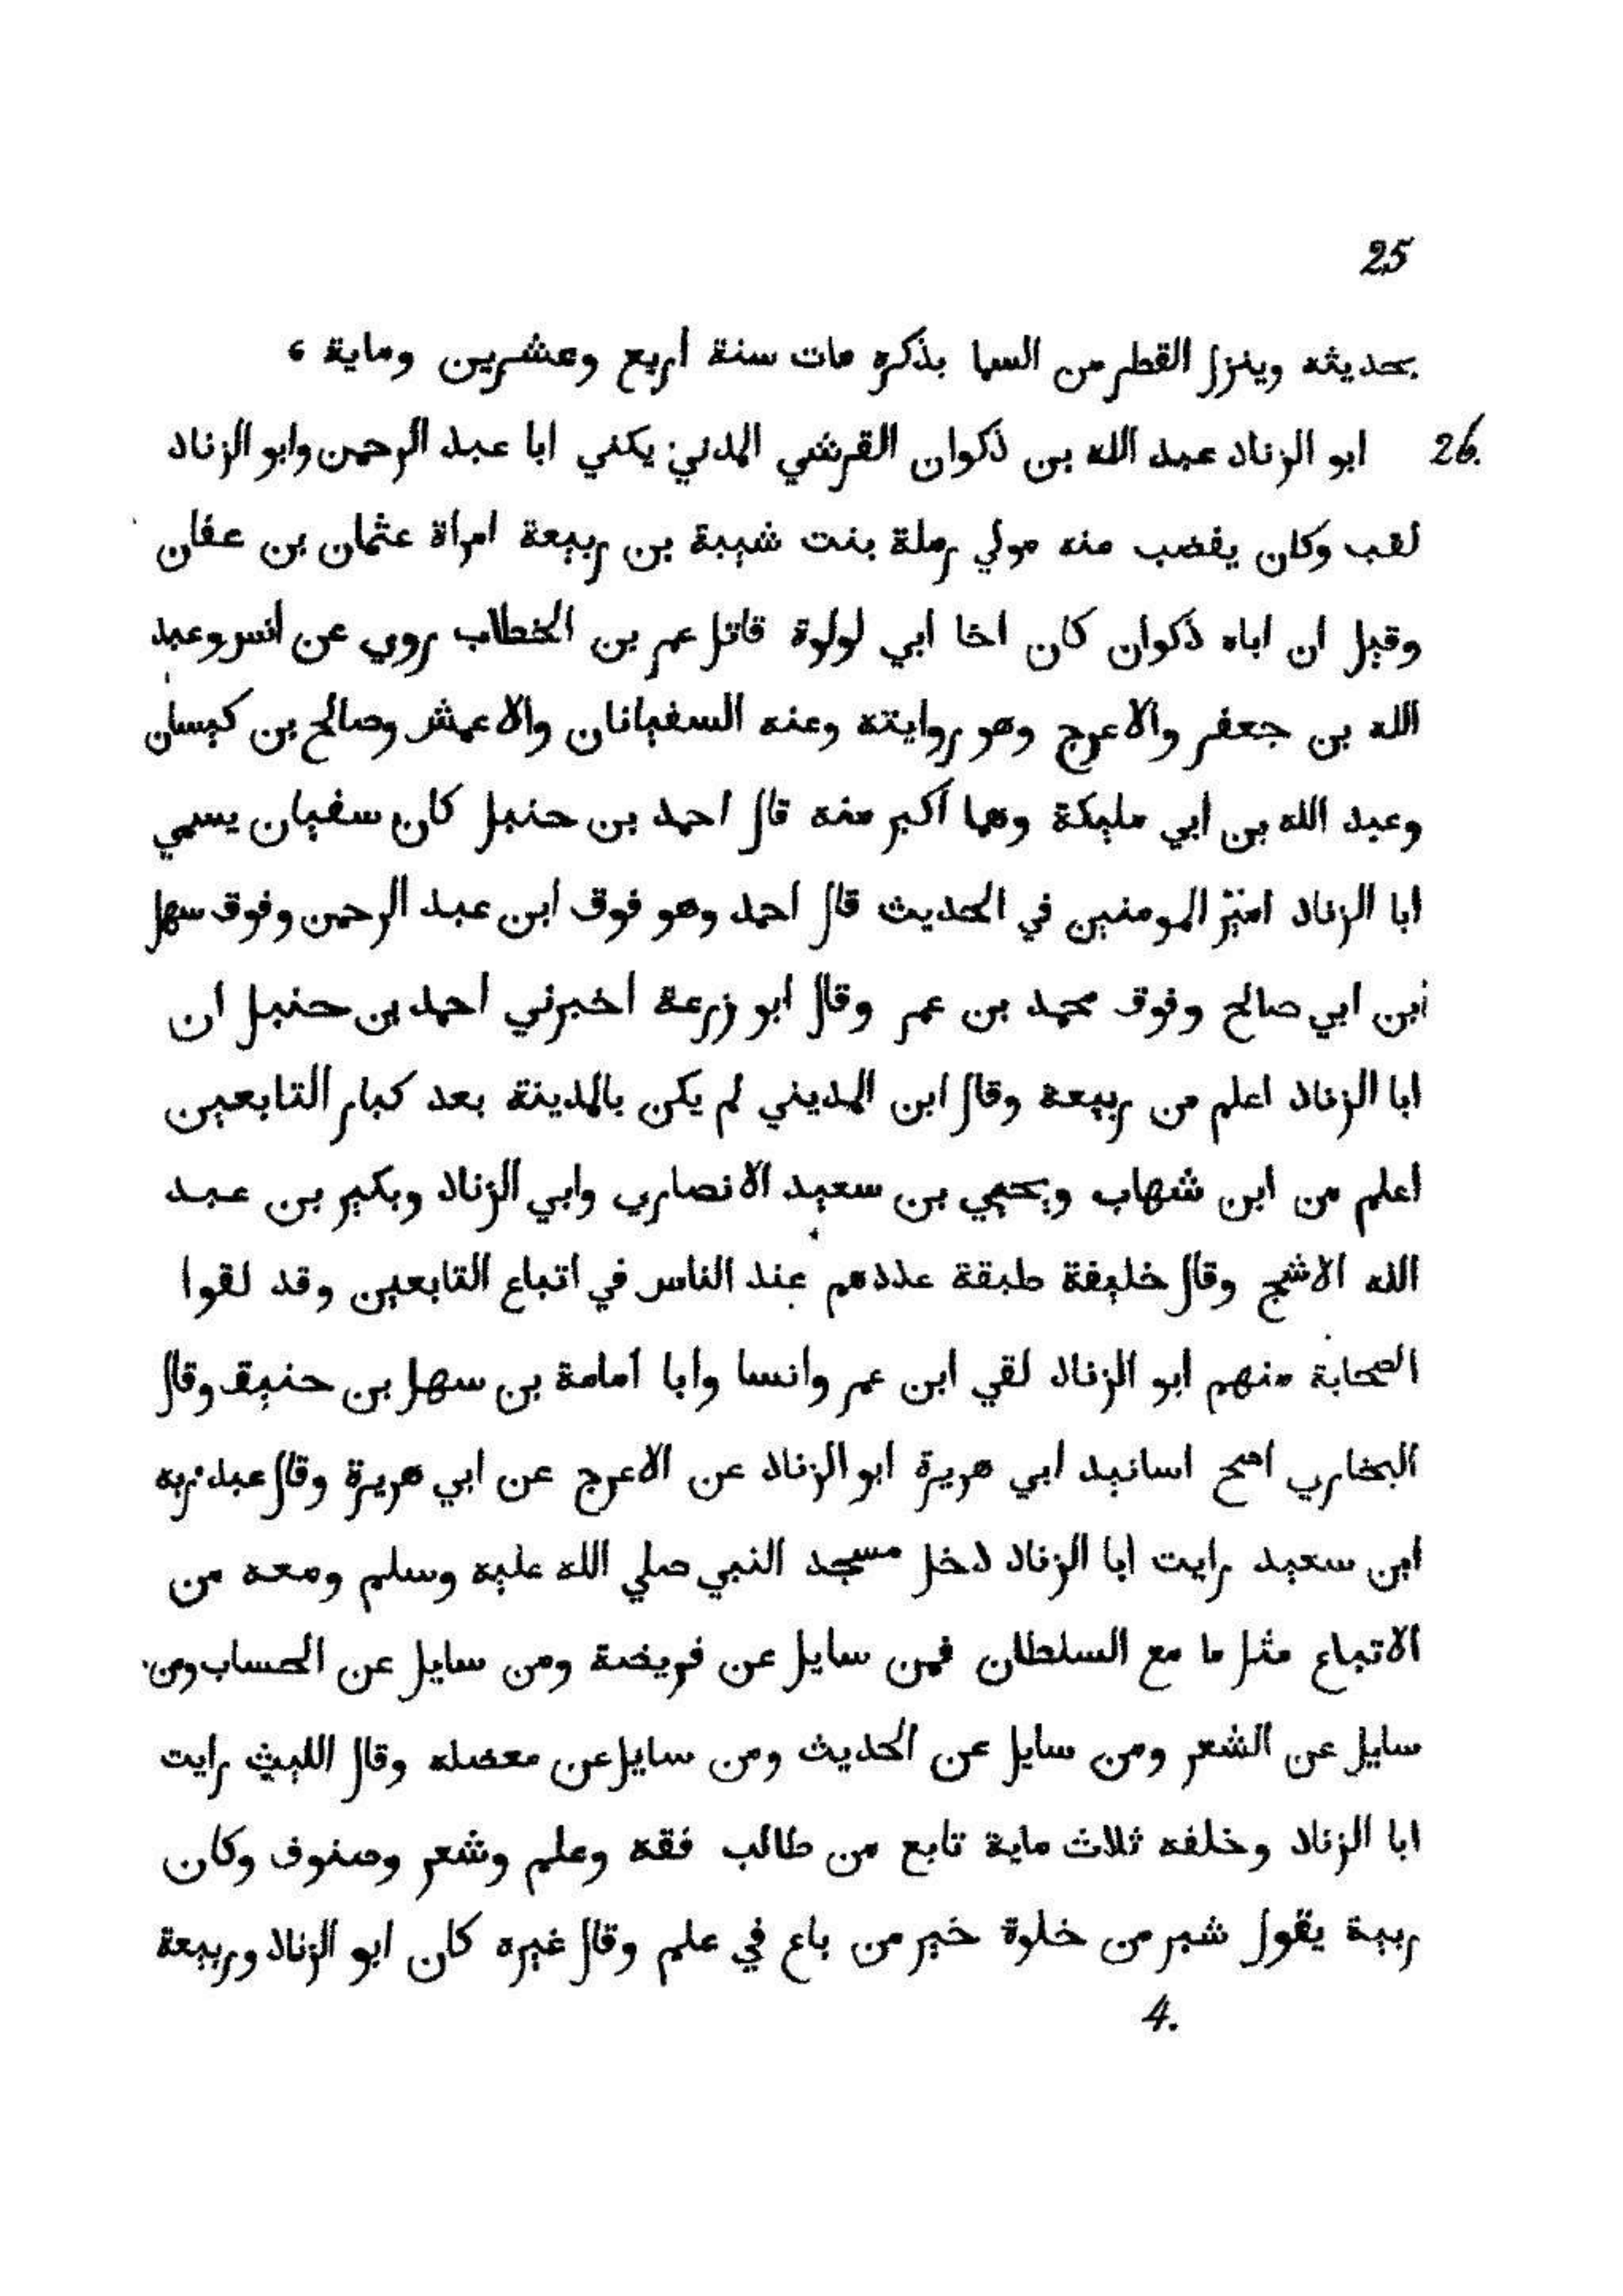 25
بحديثه وينزل القطر من السما بذكره مات سنة أربع وعشرين وماية ،
26. ابو الزناد عبد الله بن ذكوان القرشي المدني يكني ابا عبد الرحمن وابو الزناد
لقب وكان يغضب منه مولي رملة بنت شيبة بن ربيعة امراة عثمان بن عفان
وقيل ان اباه ذكوان كان اخا ابي لولوة قاتل عمر بن الخطاب روي عن انس وعبد
الله بن جعفر والاعرج وهو روايته وعنه السفيانان والاعمش وصالح بن كيسان
وعبد الله بن ابي مليكة وهما أكبر منه قال احمد بن حنبل كان سفيان يسمي
ابا الزناد امير المومنين في الحديث قال احمد وهو فوق ابن عبد الرحمن وفوق سهل
ابن ابي صالح وفوق محمد بن عمر وقال ابو زرعة اخبرني احمد بن حنبل ان
ابا الزناد اعلم من ربيعة وقال ابن المديني لم يكن بالمدينة بعد كبار التابعين
اعلم من ابن شهاب ويحيي بن سعيد الانصاري وابي الزناد وبكير بن عبد
الله الاشج وقال خليفة طبقة عددهم عند الناس في اتباع التابعين وقد لقوا
الصحابة منهم ابو الزناد لقي ابن عمر وانسا وابا أمامة بن سهل بن حنيف وقال
البخاري اصح اسانيد ابي هريرة ابو الزناد عن الاعرج عن ابي هريرة وقال عبد ربه
ابن سعيد رايت ابا الزناد دخل مسجد النبي صلي الله عليه وسلم ومعه من
الاتباع مثل ما مع السلطان فمن سايل عن فريضة ومن سايل عن الحساب ومن
سايل عن الشعر ومن سايل عن الحديث ومن سايل عن معضله وقال الليث رايت
ابا الزناد وخلفه ثلاث ماية تابع من طالب فقه وعلم وشعر وصنوف وكان
ربية يقول شبر من خلوة خير من باع في علم وقال غيره كان ابو الزناد وربيعة
4.